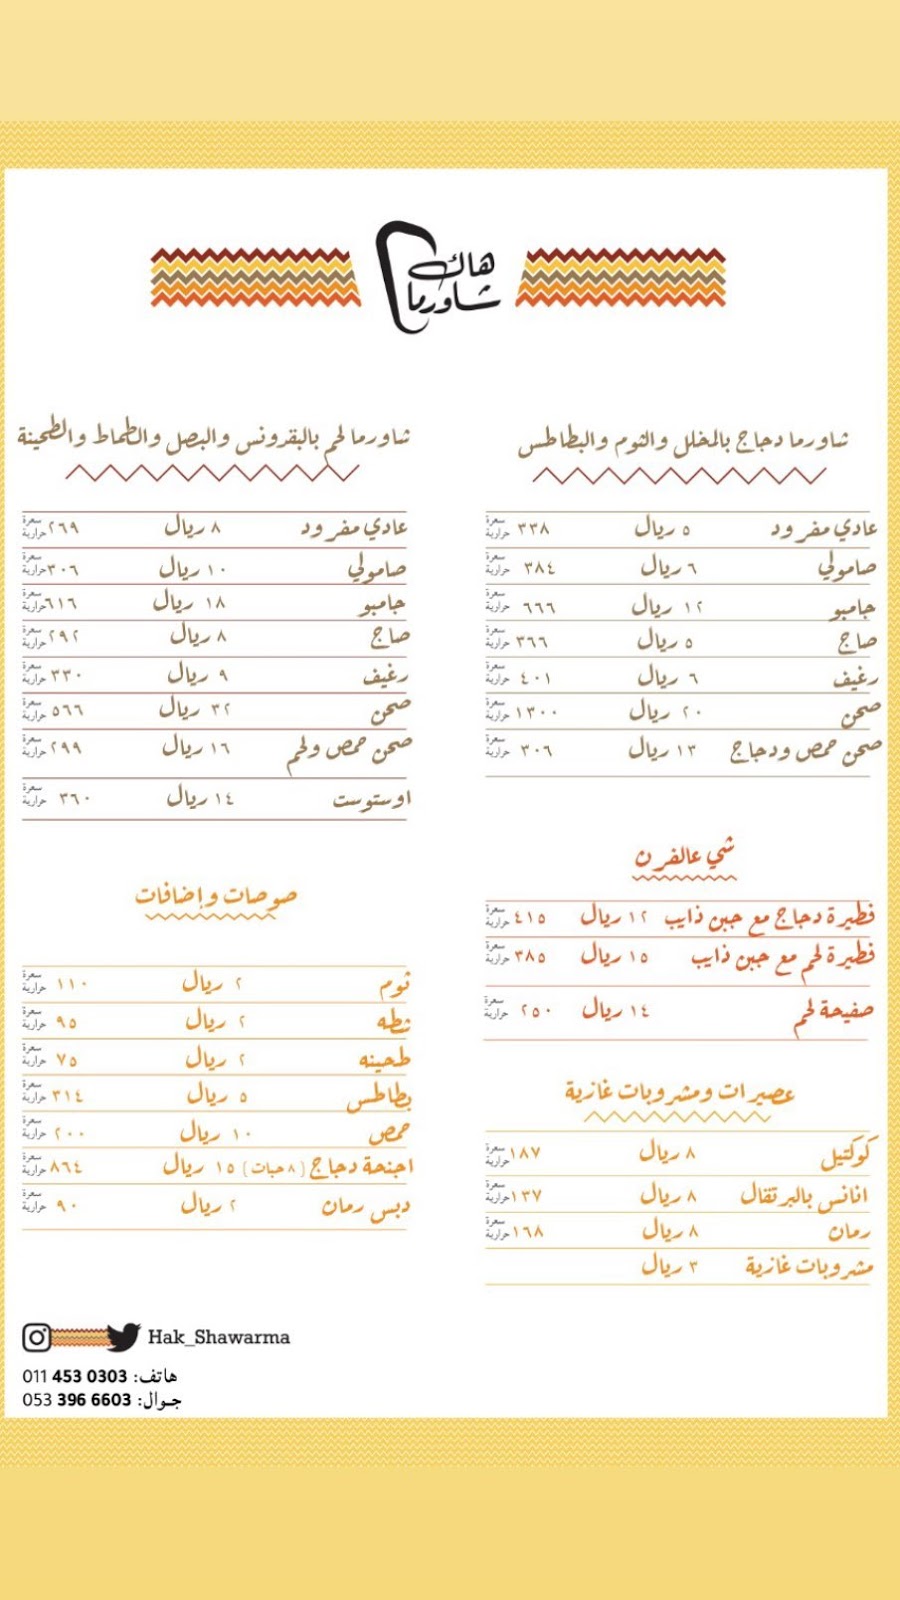 هاك
شاورما
شاورما دجاج بالمخلل والثوم والبطاطس
عادي مفرود ٥ ريال ٣٣٨ سعرة حرارية
صامولي ٦ ريال ٣٨٤ سعرة حرارية
جامبو ١٢ ريال ٦٦٦ سعرة حرارية
صاج ٥ ريال ٣٦٦ سعرة حرارية
رغيف ٦ ريال ٤٠١ سعرة حرارية
صحن ٢٠ ريال ١٣٠٠ سعرة حرارية
صحن حمص ودجاج ١٣ ريال ٣٠٦ سعرة حرارية
شي عالفرن
فطيرة دجاج مع جبن ذايب ١٢ ريال ٤١٥ سعرة حرارية
فطيرة لحم مع جبن ذايب ١٥ ريال ٣٨٥ سعرة حرارية
صفيحة لحم ١٤ ريال ٢٥٠ سعرة حرارية
عصيرات ومشروبات غازية
كوكتيل ٨ ريال ١٨٧ سعرة حرارية
انانس بالبرتقال ٨ ريال ١٣٧ سعرة حرارية
رمان ٨ ريال ١٦٨ سعرة حرارية
مشروبات غازية ٣ ريال
شاورما لحم بالبقرونس والبصل والطماط والطحينة
عادي مفرود ٨ ريال ٢٦٩ سعرة حرارية
صامولي ١٠ ريال ٣٠٦ سعرة حرارية
جامبو ١٨ ريال ٦١٦ سعرة حرارية
صاج ٨ ريال ٢٩٢ سعرة حرارية
رغيف ٩ ريال ٣٣٠ سعرة حرارية
صحن ٣٢ ريال ٥٦٦ سعرة حرارية
صحن حمص ولحم ١٦ ريال ٢٩٩ سعرة حرارية
اوستوست ١٤ ريال ٣٦٠ سعرة حرارية
صوصات وإضافات
ثوم ٢ ريال ١١٠ سعرة حرارية
شطه ٢ ريال ٩٥ سعرة حرارية
طحينه ٢ ريال ٧٥ سعرة حرارية
بطاطس ٥ ريال ٣١٤ سعرة حرارية
حمص ١٠ ريال ٢٠٠ سعرة حرارية
اجنحة دجاج (٨ حبات) ١٥ ريال ٨٦٤ سعرة حرارية
دبس رمان ٢ ريال ٩٠ سعرة حرارية
Hak_Shawarma
هاتف: 011 453 0303
جوال: 053 396 6603